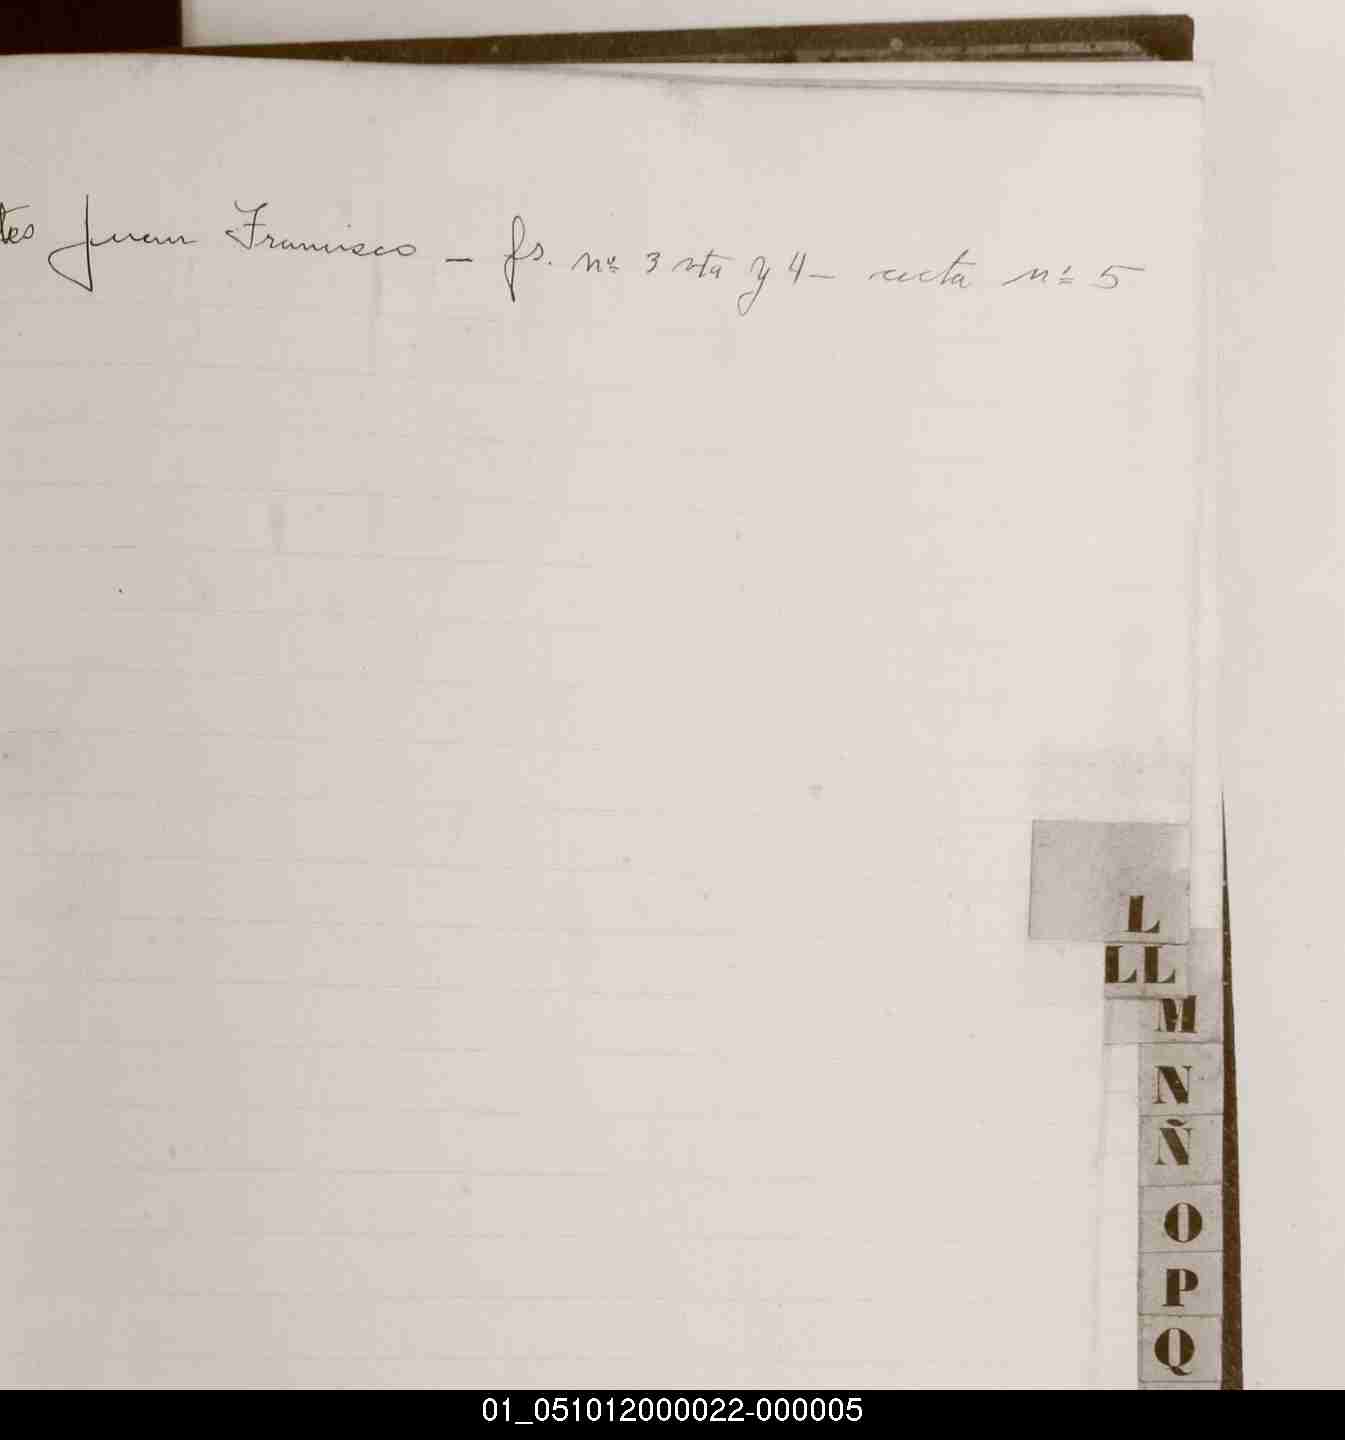 tes Juan Francisco – fs. nº 3 vta y 4 – acta nº 5
L
LL
M
N
Ñ
O
P
Q
01_051012000022-000005